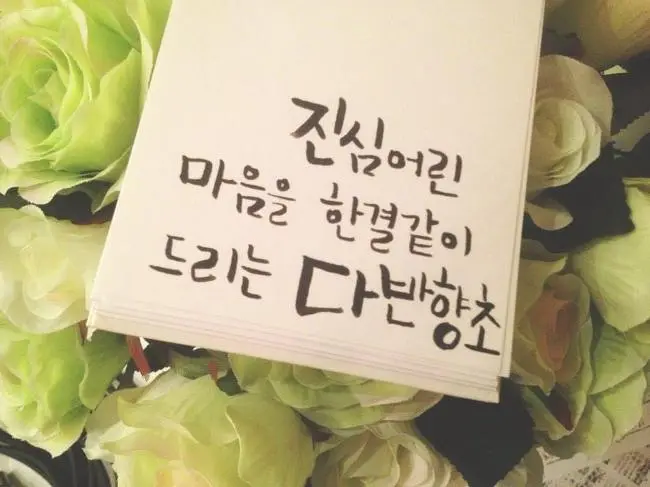 진심어린
마음을 한결같이
드리는 다반향초